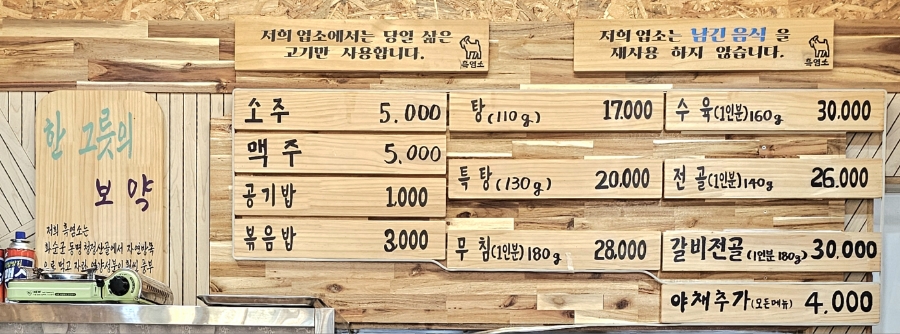 저희 업소에서는 당일 삶은
고기만 사용합니다.
흑염소
저희 업소는 남긴 음식 을
재사용 하지 않습니다.
흑염소
한 그릇의
보약
저희 흑염소는
화순군 동면 청정산골에서 자연방목
소주 5.000
맥주 5,000
공기밥 1.000
볶음밥 3.000
탕(110g) 17.000
특탕(130g) 20.000
무침(1인분)180g 28,000
수육(1인분)160g 30.000
전골(1인분)140g 26.000
갈비전골(1인분 180g) 30.000
야채추가(모든메뉴) 4,000